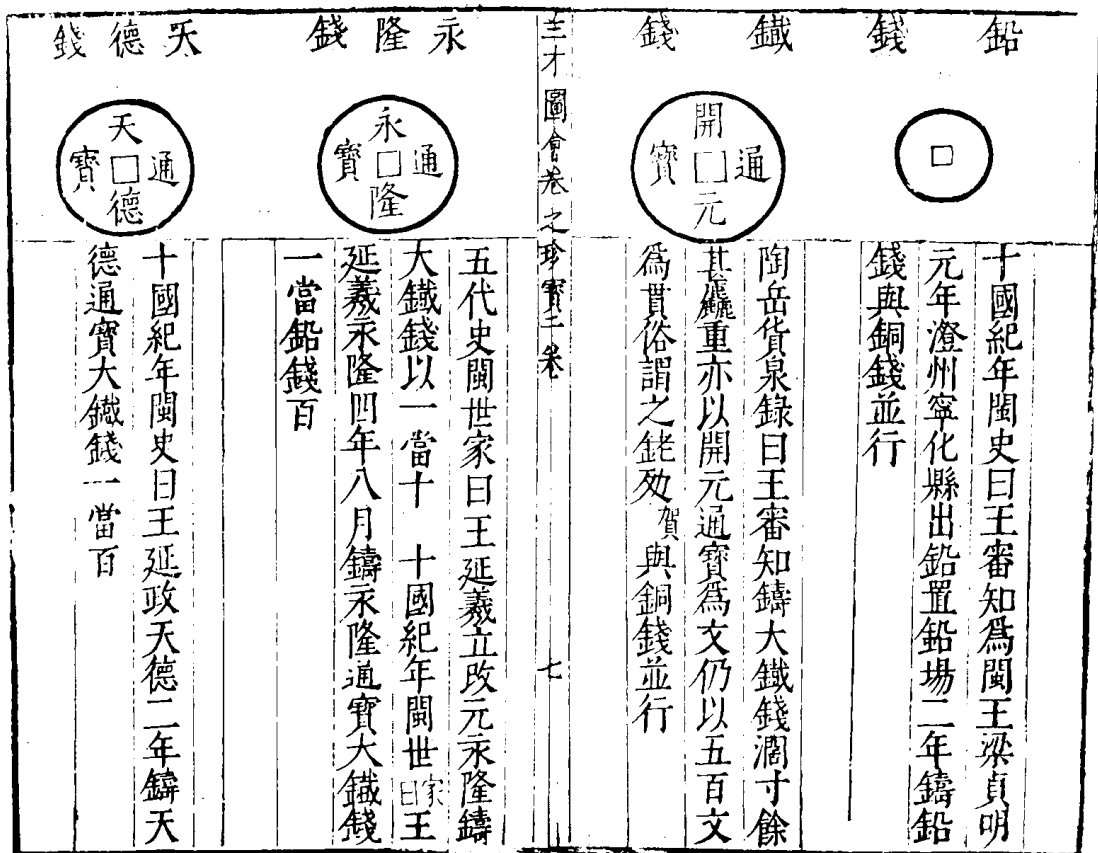 鉛錢
十國紀年閩史曰王審知爲閩王梁貞明
元年澄州寧化縣出鉛置鉛場二年鑄鉛
錢與銅錢並行
鐵錢
開元通寶
陶岳貨泉錄曰王審知鑄大鐵錢濶寸餘
甚麄重亦以開元通寶爲文仍以五百文
爲貫俗謂之銠𠛎賀與銅錢並行
三才圖會卷之珍寶二卷
七
永隆錢
永隆通寶
五代史閩世家曰王延羲立改元永隆鑄
大鐵錢以一當十 十國紀年閩世家曰王
延羲永隆四年八月鑄永隆通寶大鐵錢
一當鉛錢百
天德錢
天德通寶
十國紀年閩史曰王延政天德二年鑄天
德通寶大鐵錢一當百